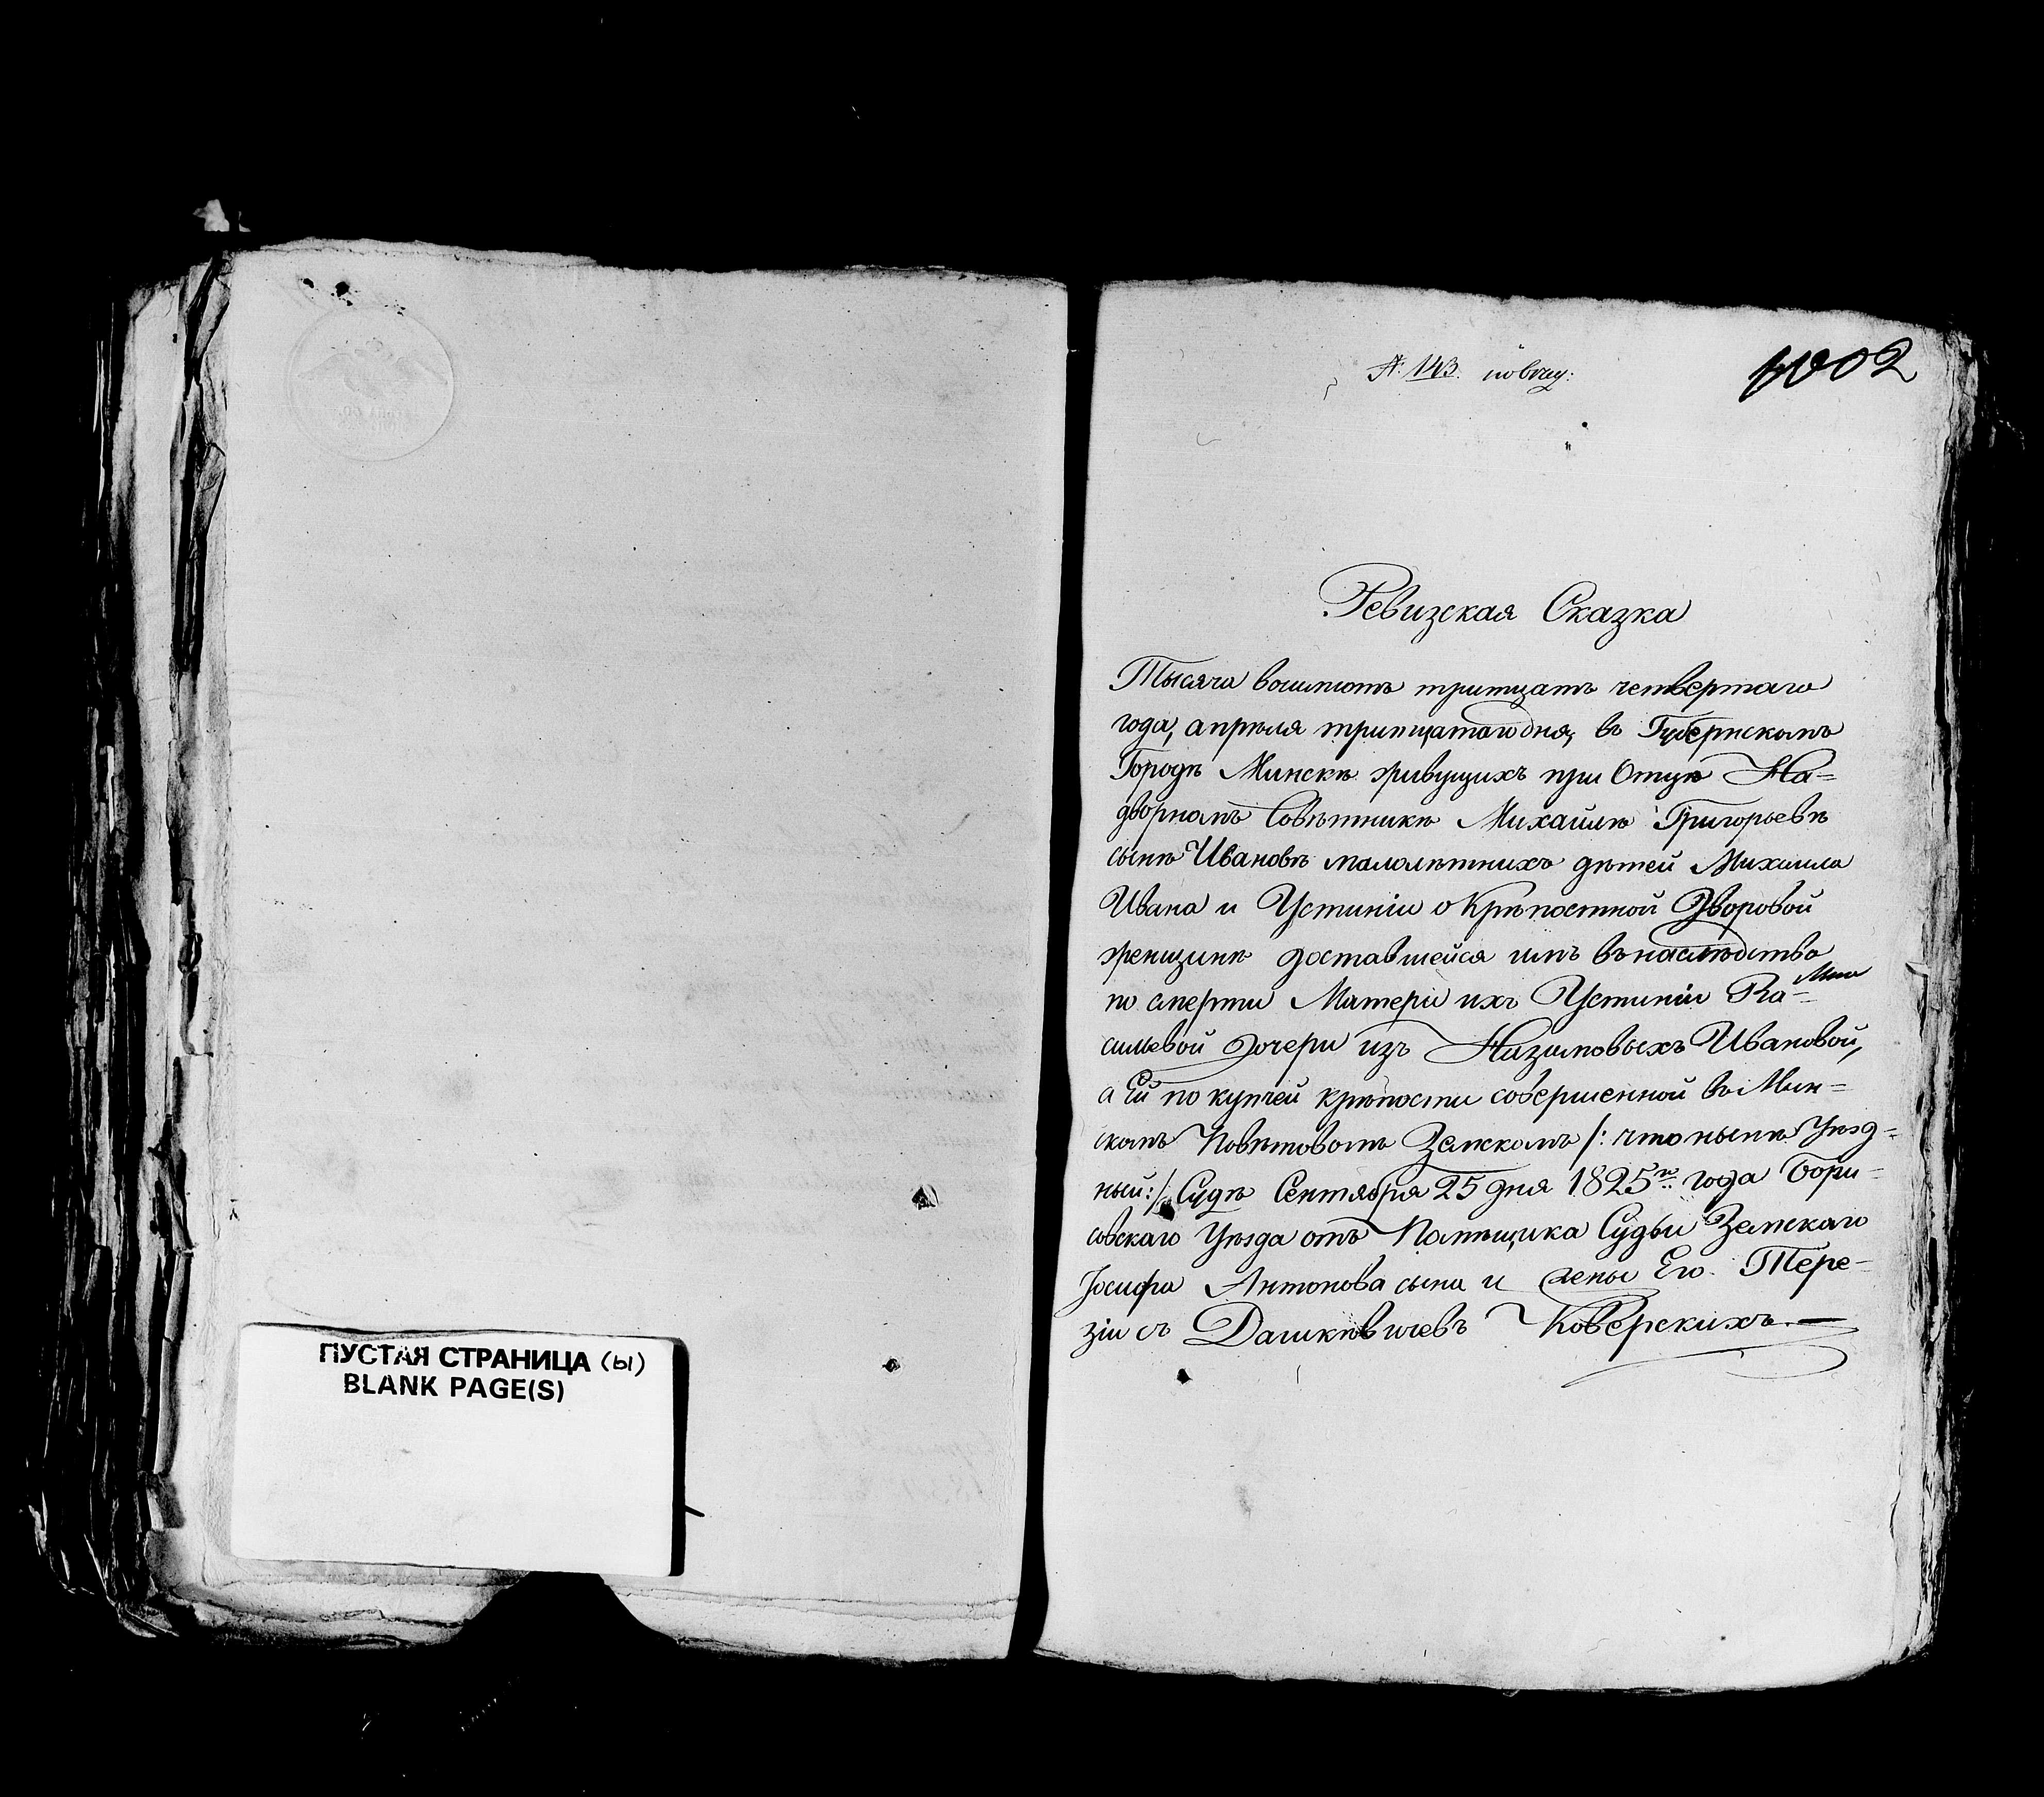 № 143
1002
Ревизская Сказка
Тысяча восимсотъ тритцать четвертаго
года, апреля тритцатого дня, въ Губернскомъ
Городѣ Минскѣ живущихъ при Отцѣ На=
дворномъ Совѣтникѣ Михайлѣ Григорьевѣ
сынѣ Ивановѣ малолѣтнихъ дѣтей Михаила
Ивана и Устиніи о Крѣпостной Дворовой
женщинѣ доставшейся имъ въ наслѣдство
по смерти Матери ихъ Устиніи
сильевой дочери изъ Назимовыхъ Ивановой,
а Ей по купчей крѣпости совершенной въ Мин=
скомъ Повѣтовомъ Земскомъ /: что нынѣ Уѣзд=
ный :/ Судѣ Сентября 25 дня 1825го года Бори=
совскаго Уѣзда отъ Помѣщика Судьи Земскаго
Іосифа Антонова сына и жены Его Тере=
зіи съ Дашкѣвичевъ Ковѣрскихъ. —
ПУСТАЯ СТРАНИЦА (ы)
BLANK PAGE(S)